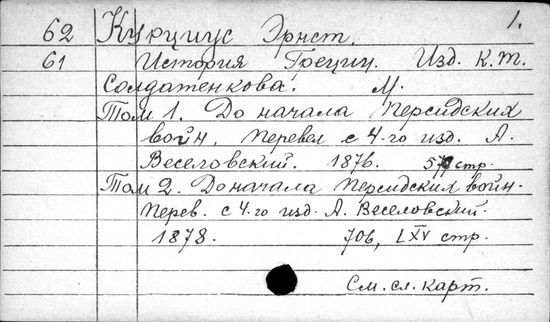 1.
62 Курциус Эрнст.
61 История Греции. Изд. К.Т.
Солдатенкова. М.
Том 1. До начала Персидских
войн. Перевел с 4-го изд. А.
Веселовский. 1876. стр.
Том 2. До начала Персидских войн.
Перев. с 4-го изд. А. Веселовский.
1878. 706, LXV стр.
См. сл. карт.